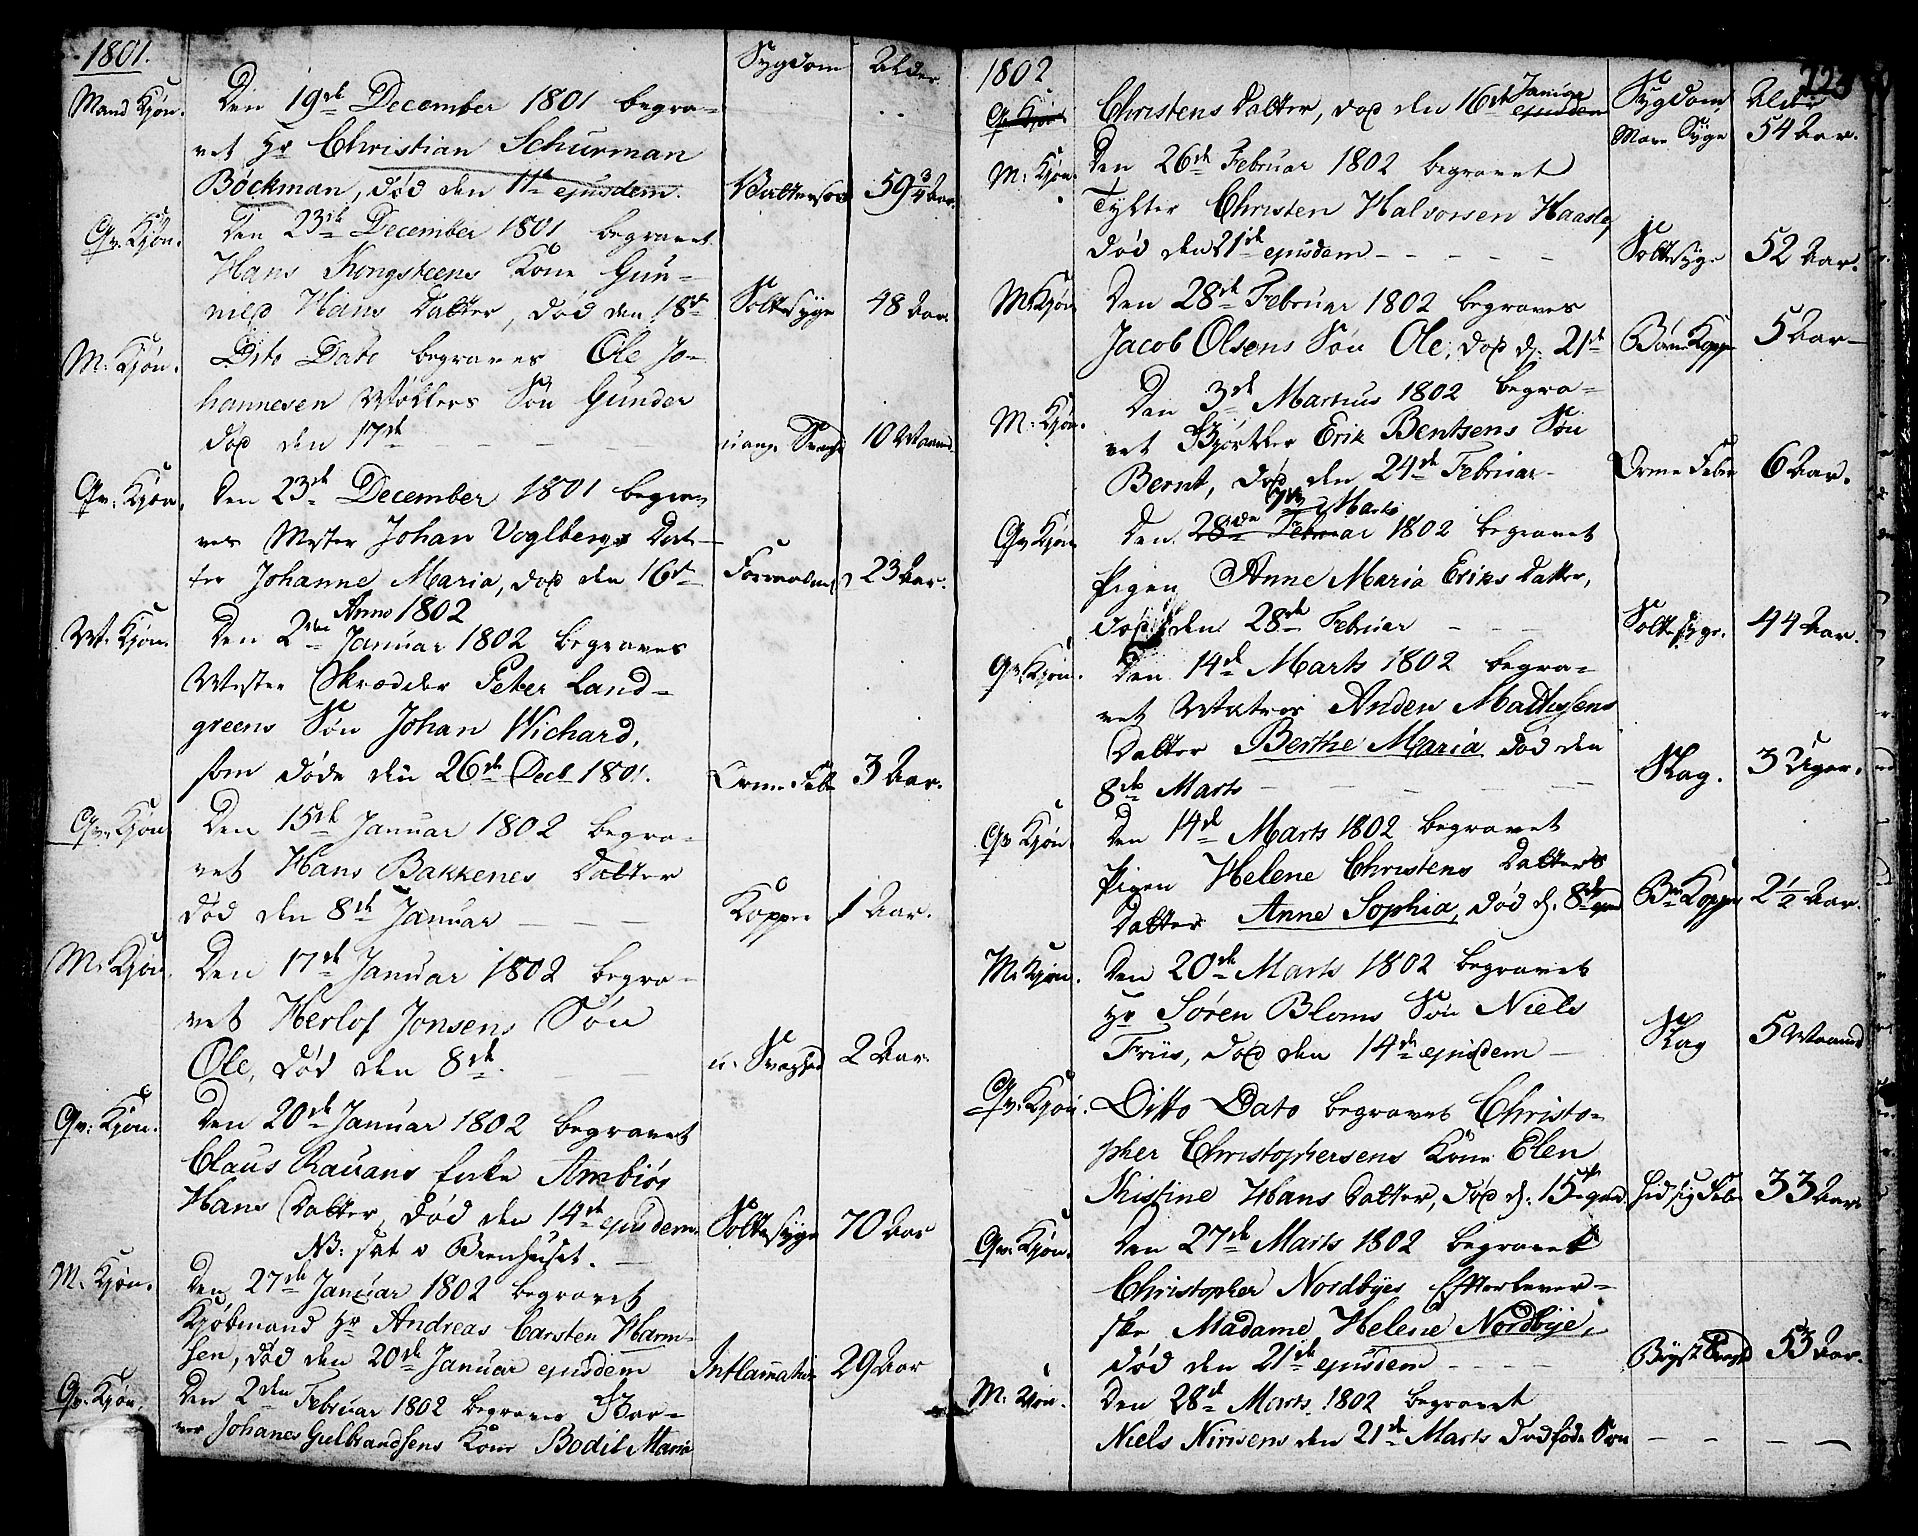 1801.
Sygdom Alder
Mand Kjøn. Den 19de December 1801 begra-
vet Hr Christian Schurman
Bøckman, død den 11te ejusdem. 59 3/4 Aar.
Qv: Kjøn. Den 23de December 1801 begravet
Hans Kongsteens Kone Gun-
nild Hans Datter, død den 18de Sottesyge 48 Aar.
M: Kjøn. Dito Dato begraves Ole Jo-
hannesen Møllers Søn Gunder
død den 17de 10 Maaned
Qv: Kjøn. Den 23de December 1801 begra-
ves Mester Johan Voglbergs Dat-
ter Johanne Maria, død den 16de 23 Aar.
Anno 1802
M. Kjøn. Den 2den Januar 1802 begraves
Mester Skrædder Peter Land-
greens Søn Johan Wichard,
som døde den 26de Decb 1801. Orme Feber 3 Aar.
Qv. Kjøn Den 15de Januar 1802 begra-
vet Hans Bakkenes Datter
død den 8de Januar Kopper 1 Aar.
M. Kjøn. Den 17de Januar 1802 begra-
vet Herlof Jonsens Søn
Ole, død den 8de. u. Svaghed 2 Aar.
Qv: Kjøn. Den 20de Januar 1802 begravet
Claus Rauans Enke Ambiør
Hans Datter, død den 14de ejusdem Sottesyge 70 Aar
NB: sat i Beenhuset.
M. Kjøn. Den 27de Januar 1802 begravet
Kjøbmand Hr Andreas Carsten Harm-
sen, død den 20de Januar ejusdem Inflamation 29 Aar
Qv. Kjøn. Den 2den Februar 1802 begraves
Johanes Gulbrandsens Kone Bodil Maria
1802
Sygdom Alder
Qv Kjøn Christens Datter, død den 16de Januar ejusdem 54 Aar.
M: Kjøn. Den 26de Februar 1802 begravet
Christen Halvorsen
død den 21de ejusdem Sottesyge 52 Aar.
M: Kjøn Den 28de Februar 1802 begraves
Jacob Olsens Søn Ole, død d. 21de Børne Kopper 5 Aar
M: Kjøn. Den 3de Martius 1802 begra-
vet Erik Bentsens Søn
Bernt, død den 24de Februar Orme Feber 6 Aar.
7de Marts
Qv Kjøn Den 28de Februar 1802 begravet
Pigen Anne Maria Eriks Datter,
død den 28de Februar Sottesyge. 44 Aar.
Qv. Kjøn. Den 14de Marts 1802 begra-
vet Matros Anders Mathisens
Datter Berthe Maria død den
8de Marts Slag. 3 Uger.
Qv Kjøn. Den 14de Marts 1802 begravet
Pigen Helene Christens Datters
Datter Anne Sophia, død d. 8de Bn Kopper 2 1/2 Aar.
M. Kjøn. Den 20de Marts 1802 begravet
Hr Søren Bloms Søn Niels
Friis, død den 14de ejusdem Slag 5 Maaned
Qv: Kjøn. Ditto Dato begravet Christo-
pher Christophersens Kone Elen
Kristine Hans Datter, død d: 15de Hidsig Feber 33 Aar.
Qv. Kjøn. Den 27de Marts 1802 begravet
Christopher Nordbyes Efterlever-
ske Madame Helene Nordbye,
død den 21de ejusdem 53 Aar.
M: Kjøn. Den 28de Marts 1802 begravet
Niels den 21de Marts dødføde Søn